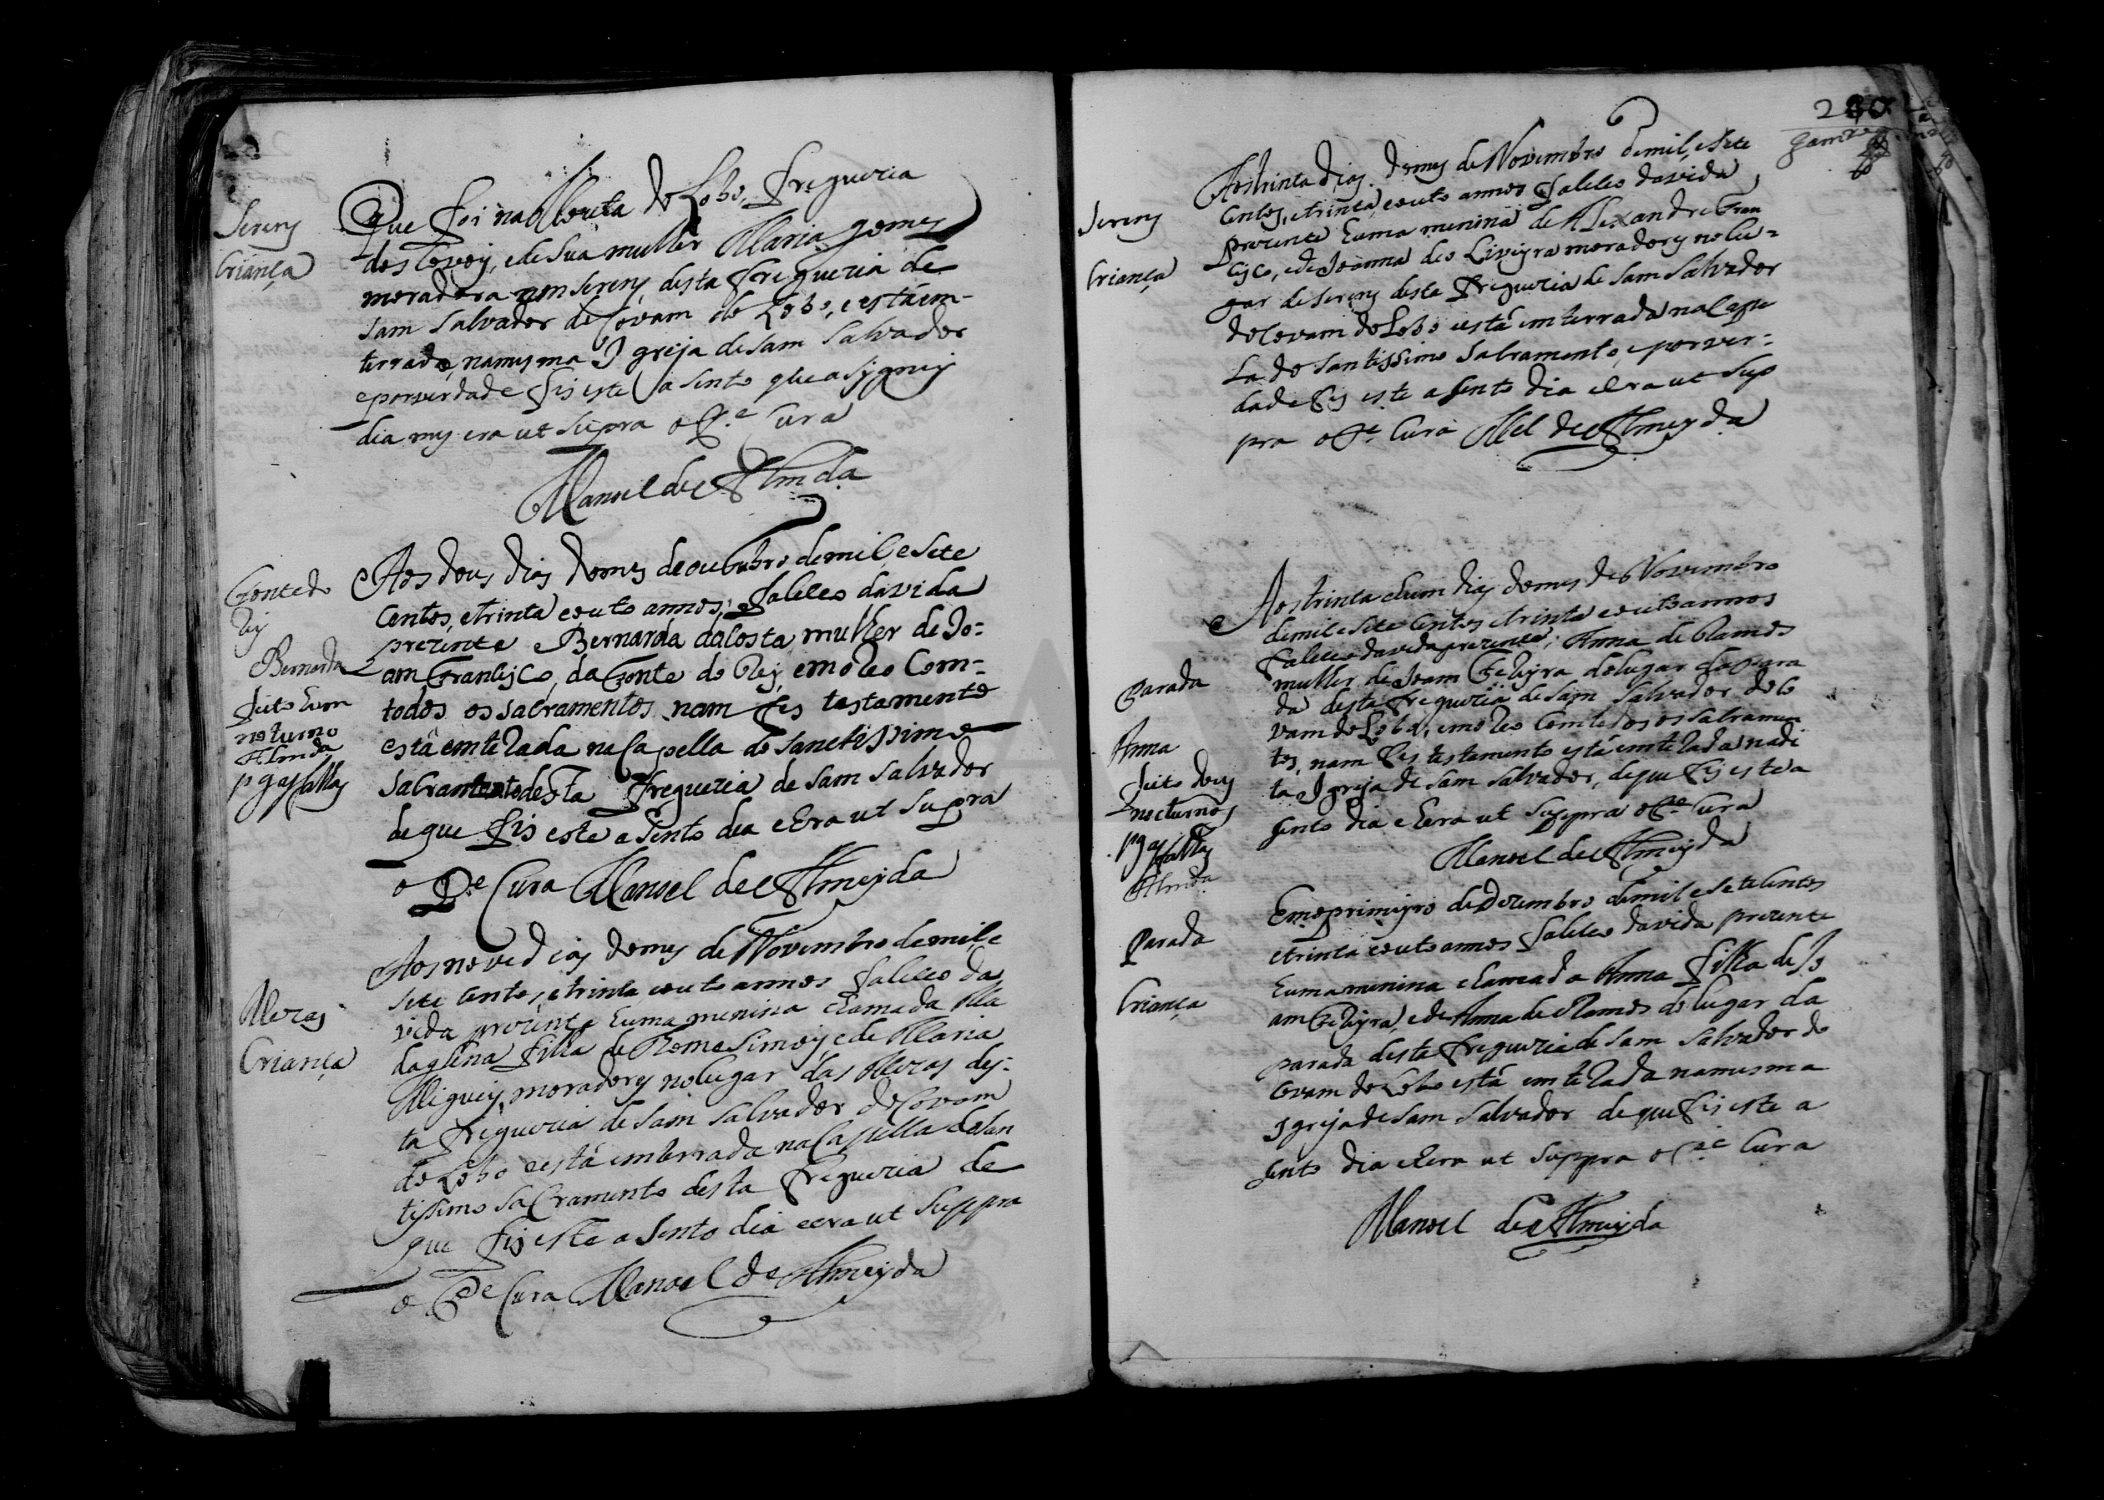 Sereis
Criança
que foi na Moreita do Lobo, freguezia
dos Covoiș, e de sua mulher Maria gomes
moradora nom Sereis, desta Freguezia de
Sam Salvador de Covam do Lobo, e está em-
terrado, na mesma Igreja de Sam Salvador
e por verdade fis este asento que asygney
dia mes era ut supra o P.e Cura
Manoel de Almda
Fonte do
Rey
Bernarda
Feito hum
noturno
Almda
pgas as fallas
Aos dous dias do mes de outubro de mil e sete
centos, e trinta e outo annos, faleceo da vida
prezente Bernarda da Costa mulher de Jo=
am Francisco, da Fonte do Rey, e moreo com-
todos os sacramentos nam fes testamento
está emterada na Capella do Sanctissimo
Sacramento desta Freguezia de Sam Salvador
de que fis este asento dia e Era ut supra
o P.e Cura Manoel de Almeyda
Meras
Criança
Aos nove dias do mes de Novembro de mil e
sete centos, e trinta e outo annos faleceo da
vida prezente huma menina chamada Ma
dagleina filha de Rome Simoiș, e de Maria
Migueis, moradores no lugar das Meras des=
ta Freguezia de Sam Salvador de Covam
do Lobo e está emterrada na Capella do San
tissimo Sacramento desta Freguezia de
que fis este asento dia e era ut suppra
o P.e Cura Manoel de Almeyda
280
Sereis
Criança
Aos trinta dias do mes de Novembro de mil, e sete
centos, e trinta, e outo annos faleceo da vida
prezente huma menina de Alexandre Fran
cisco, e de Joanna de Oliveyra moradores no lu=
gar de Sereis desta Freguezia de Sam Salvador
de Covam do Lobo está emterrada na Cape
la do Santissimo Sacramento, e por ver=
dade fis este asento dia e Era ut Sup
pra o P.e Cura Mel de Almeyda
Parada
Anna
Feito dous
nocturnos
pgas as fallas
Almda
Aos trinta e hum dias do mes de Novembro
de mil e sete centos e trinta e outo annos
faleceo da vida prezente, Anna de Ramos
mulher de Joam Ferreyra do lugar da Para
da desta Freguezia de Sam Salvador de Co
vam do Lobo, e moreo com todos os sacramen
tos, nam fes testamento está emterada na di
ta Igreja de Sam Salvador, de que fis este a
sento dia e Era ut Suppra o P.e Cura
Manoel de Almeyda
Parada
Criança
Em o primeyro de Dezembro de mil e sete centos
e trinta e outo annos faleceo da vida prezente
huma menina chamada Anna filha de Jo
am Ferreyra, e de Anna de Ramos do lugar da
parada desta Freguezia de Sam Salvador de
Covam do Lobo está emterada na mesma
Igreja de Sam Salvador de que fis este a
sento dia e Era ut Suppra o P.e Cura
Manoel de Almeyda